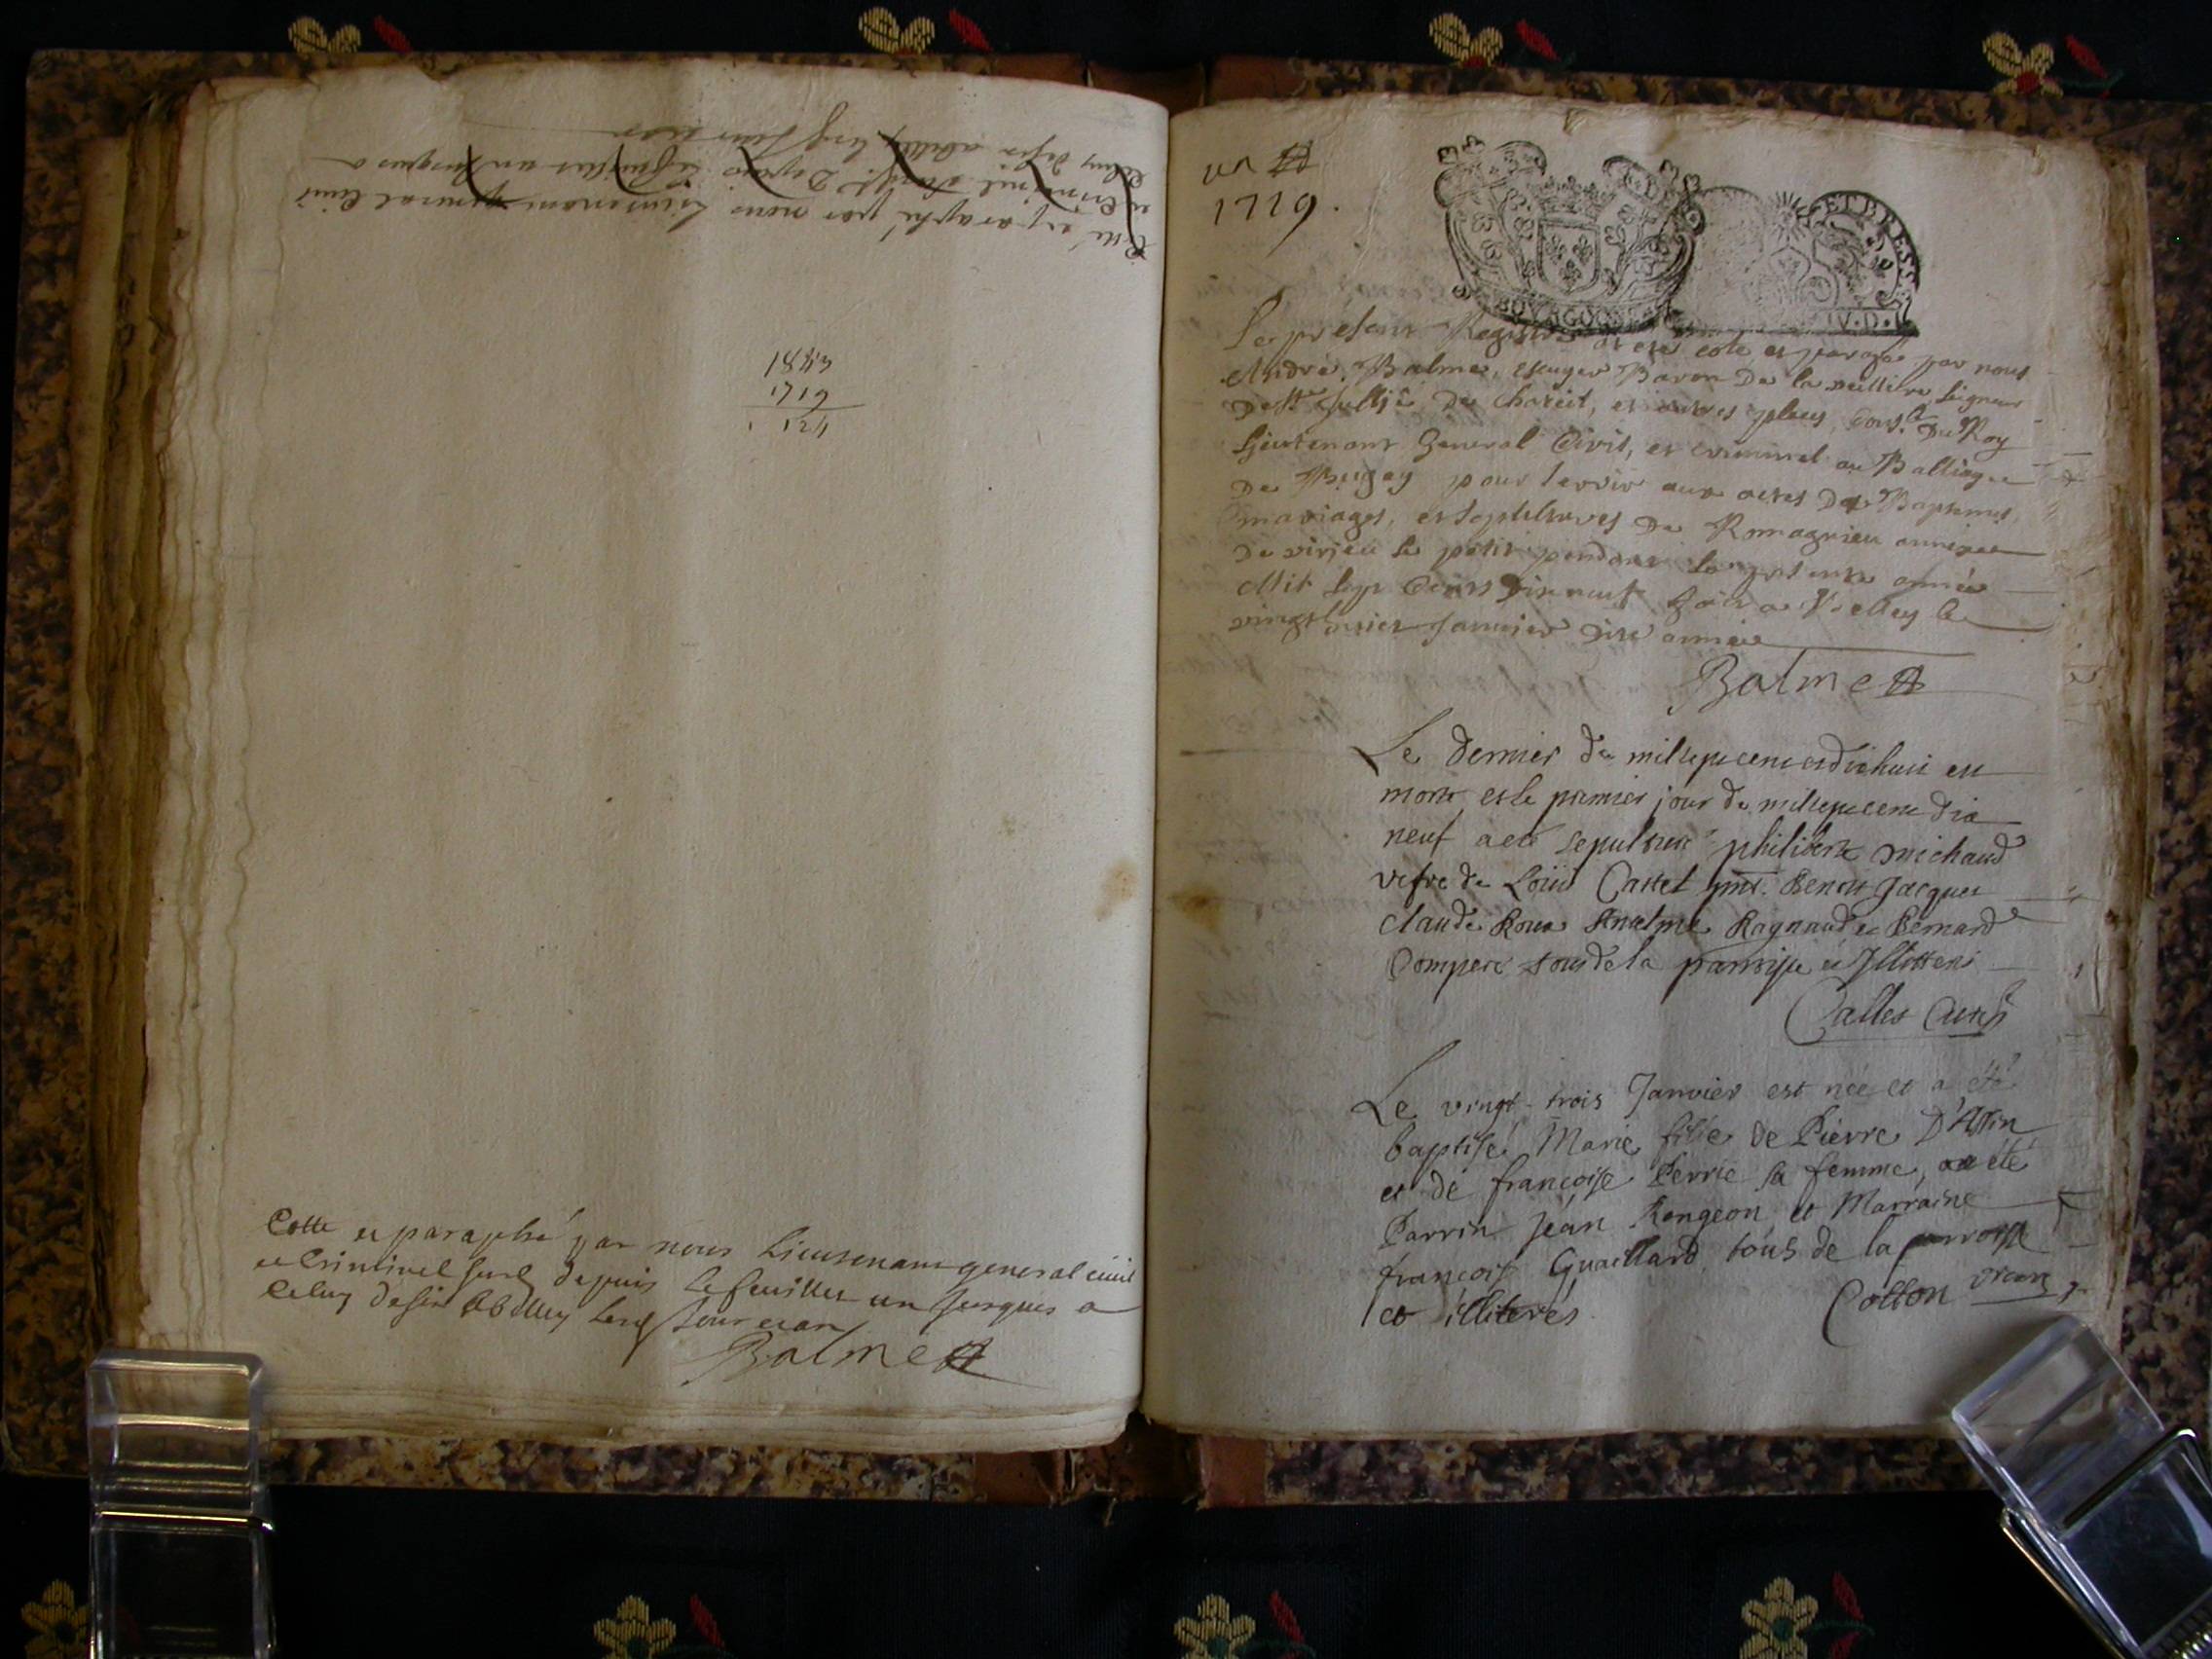 Cotté et paraphé par nous Lieutenant general civil
et Criminel depuis le feuillet un jusques a
1843
1719
124
Cotte et paraphé par nous Lieutenant general civil
et Criminel depuis le feuillet un jusques a
Celuy
Balme
un
1719.
BOURGOGNE ET BRESSE
Le present Registre at este coté et parafé par nous
André Balme, escuyer Baron De la veilliere seigneur
De St Jullin De Chareit, et autres places, Consr. Du Roy
Lieutenant General Civil, et criminel au Balliage
De Beugey pour servir aux actes De Baptemes
mariages, et sepultures De Romagnieu annexe
De virieu le petit pendant la presente année
Mil sept Cents Dix neuf fait a Belley le
vingt Janvier dite année
Balme
Le dernier de mil sept cent et dixhuit est
morte et le premier jour de mil sept cent dix
neuf a eté sepulturé philiberte michaud
vefve de Loüis Castel pnt. Benoit Jacques
claude Roux Antelme Ragnaud et Bernard
Compere tous de la parroisse et Illitteré
Calles Curé
Le vingt-trois Janvier est née et a été
baptisé Marie fille de Pierre D'Assin
et de françoise Perrie sa femme, a été
Parrin Jean Rongeon et Marraine
françois Guaillard tous de la parroisse
et illiterés Cotton vicar